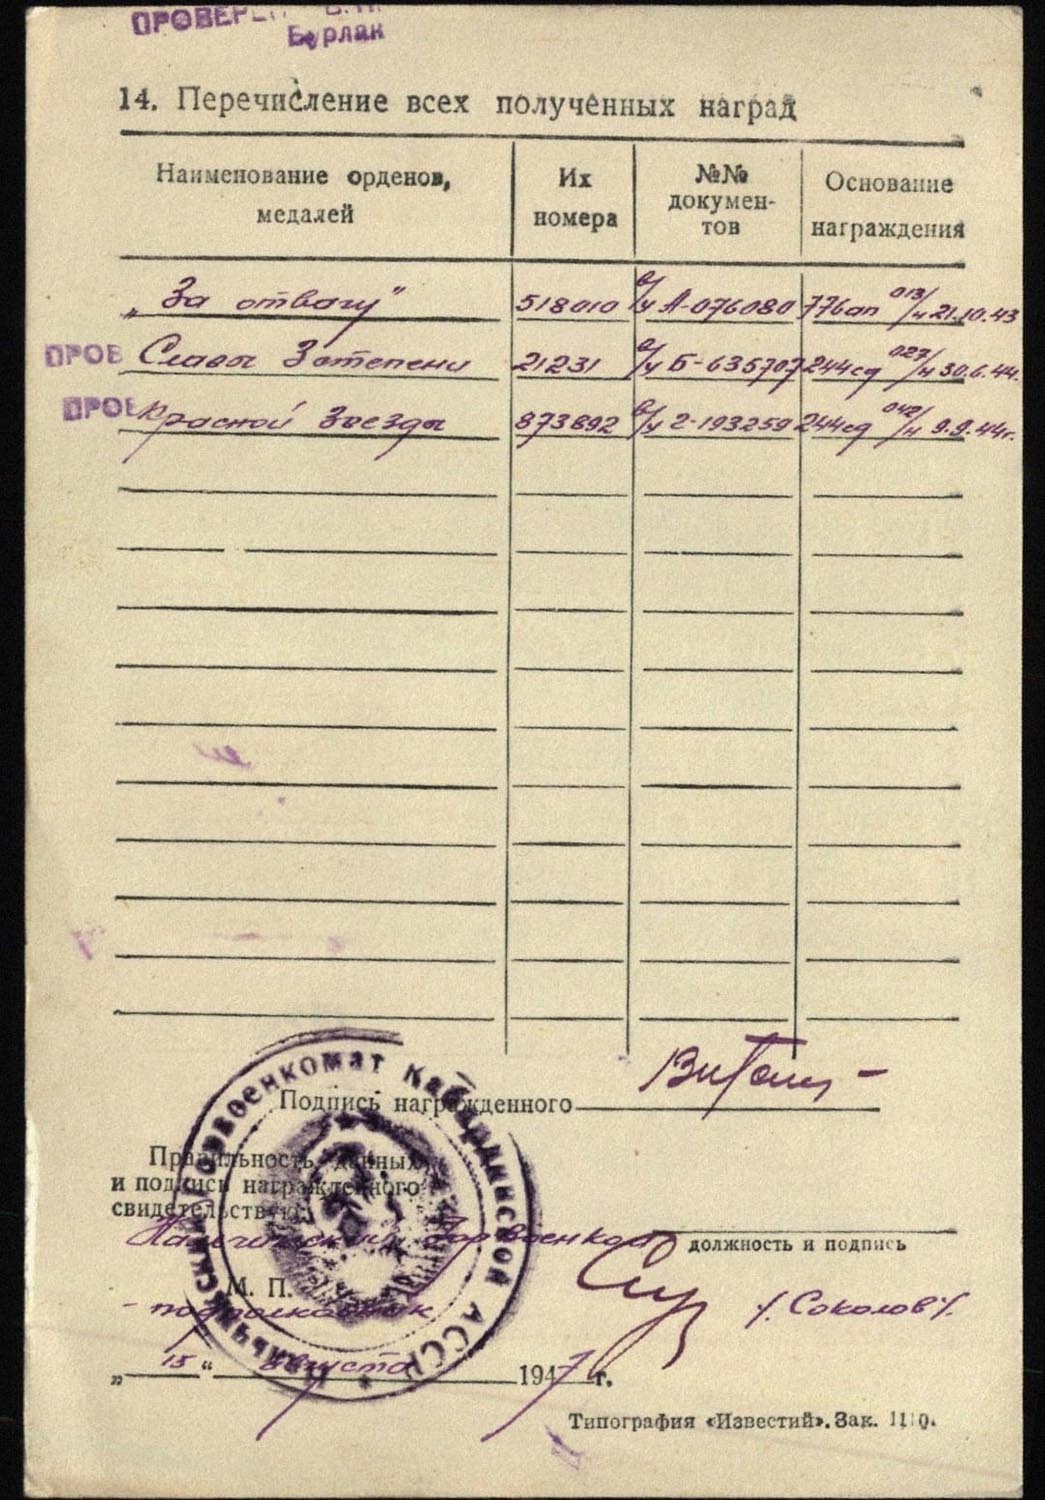 ПРОВЕРЕ
Бурлак
14. Перечисление всех полученных наград
Наименование орденов, медалей
Их номера
№№ докумен-
тов
Основание награждения
„За отвагу" 518010 в/у А-076080 776ап 013/н 21.10.43
ПРОВ Славы 3 степени 21231 в/у Б-635707 244сд 027/н 30.6.44г.
ПРОВ Красной Звезды 873892 в/у 2-193259 244сд 042/н 9.9.44г.
Подпись награжденного
Правильность данных
и подписи награжденного
свидетельствую:
Нальчикский Горвоенком
должность и подпись
М. П.
- подполковник /Соколов/
„15" августа 1947 г.
Нальчикский Горвоенкомат Кабардинской АССР
Типография «Известий». Зак. 1110.